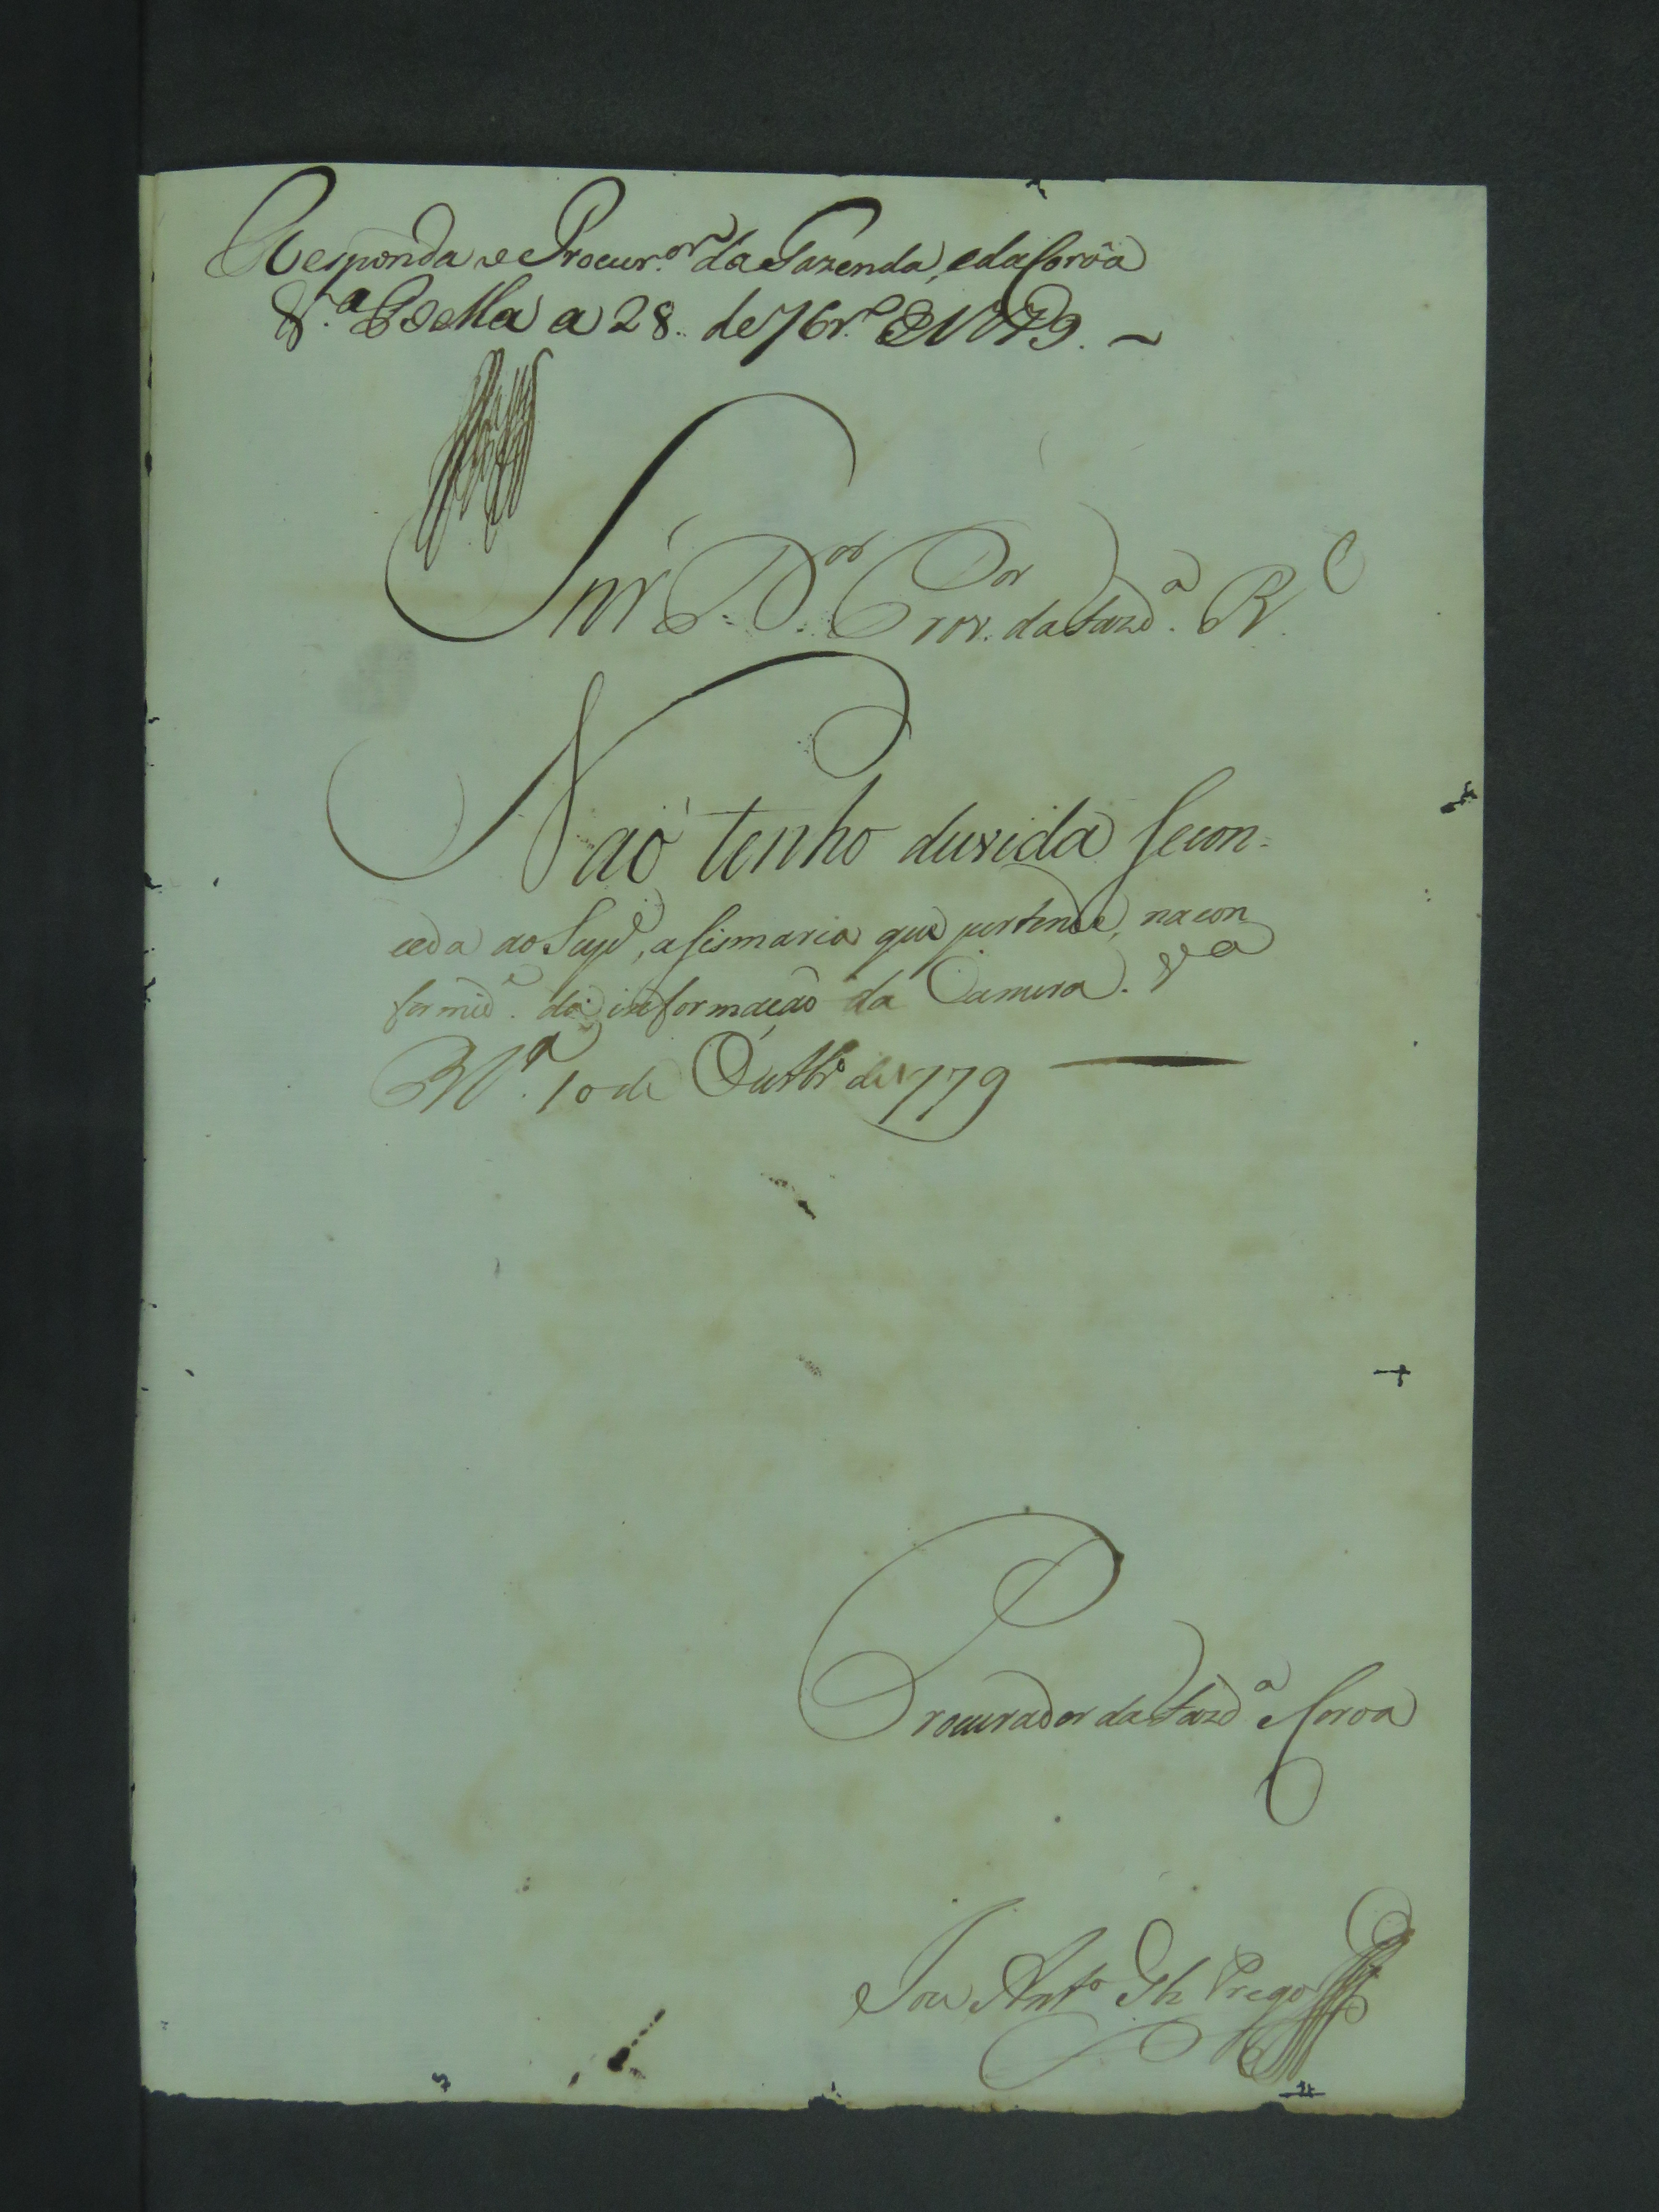 Responda o Procur.or da Fazenda, e da Coroã
V.a Bella a 28. de 7br.o de 1779. ~
Snr. D.or Prov.or da Faz.da R.
Naõ tenho duvida se con-
ceda ao Sup.e, a sismaria que pertende, na con
formid.e da informaçaõ da Camera. V.a
B.a 10 de Outbr.o de 1779
Procurador da Faz.da e Coroa
Ant.o Prego